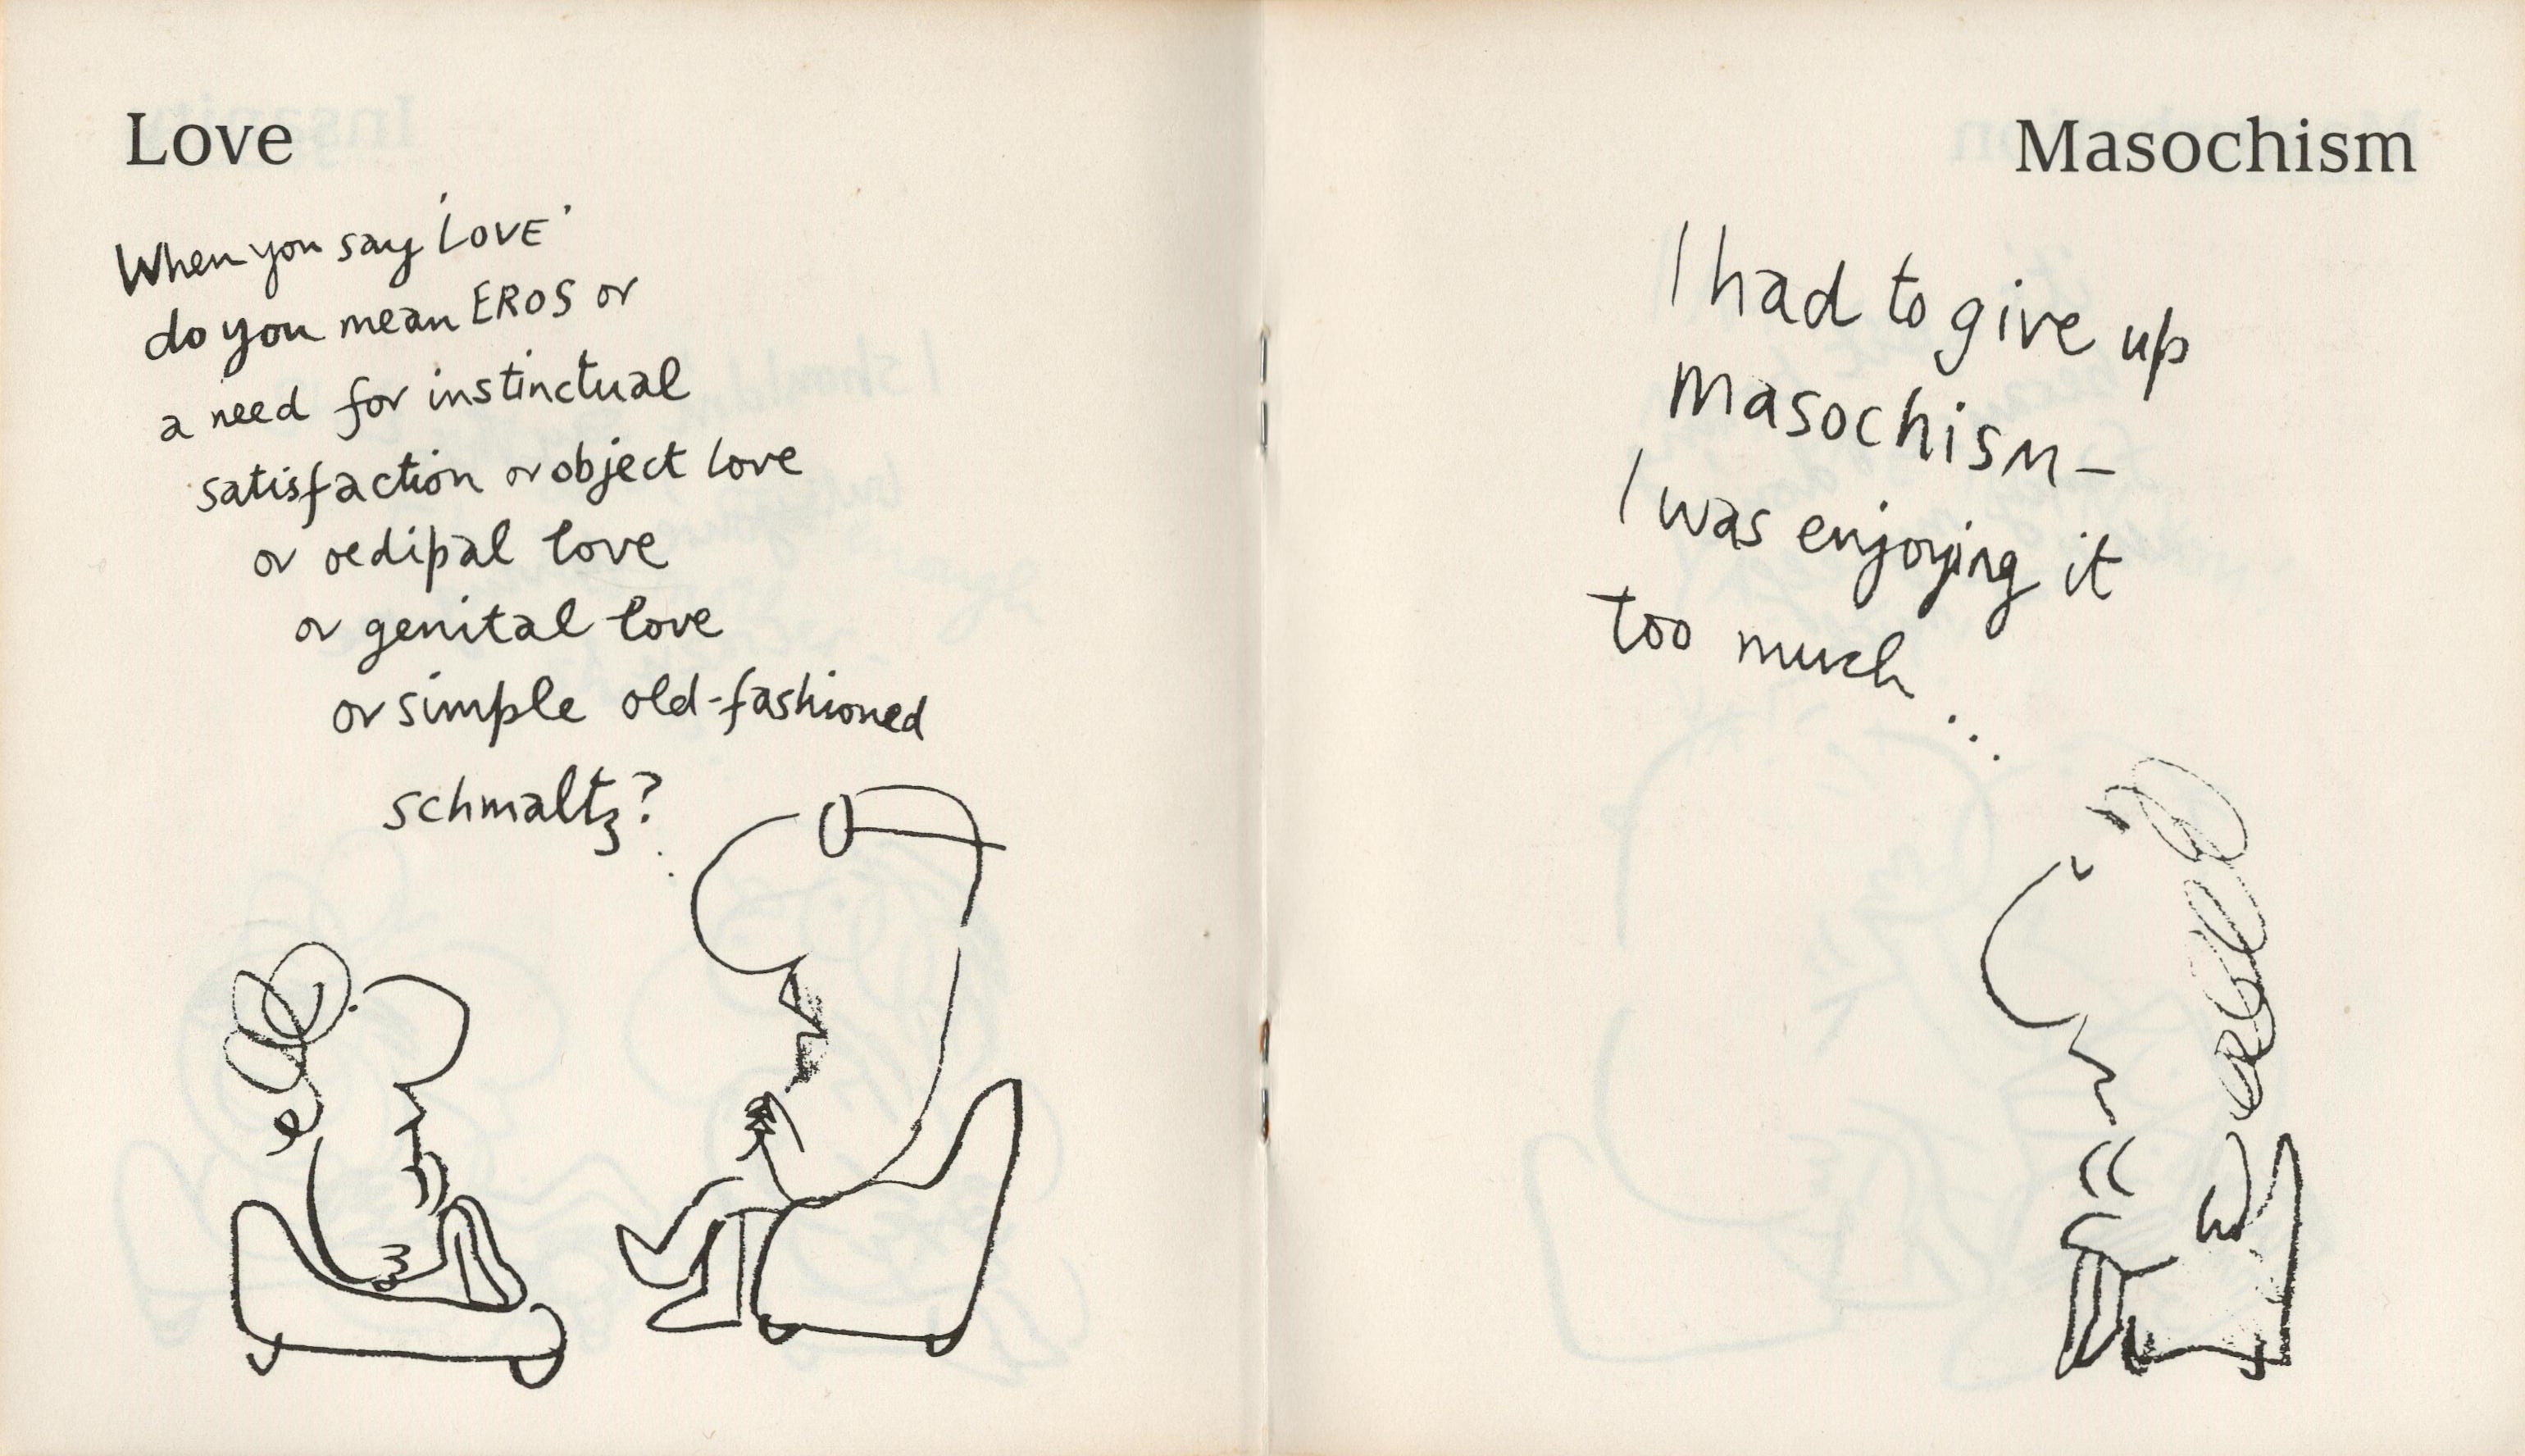 Love
When you say 'LOVE'
do you mean EROS or
a need for instinctual
satisfaction or object love
or oedipal love
or genital love
or simple old-fashioned
schmaltz?
Masochism
I had to give up
Masochism—
I was enjoying it
too much...